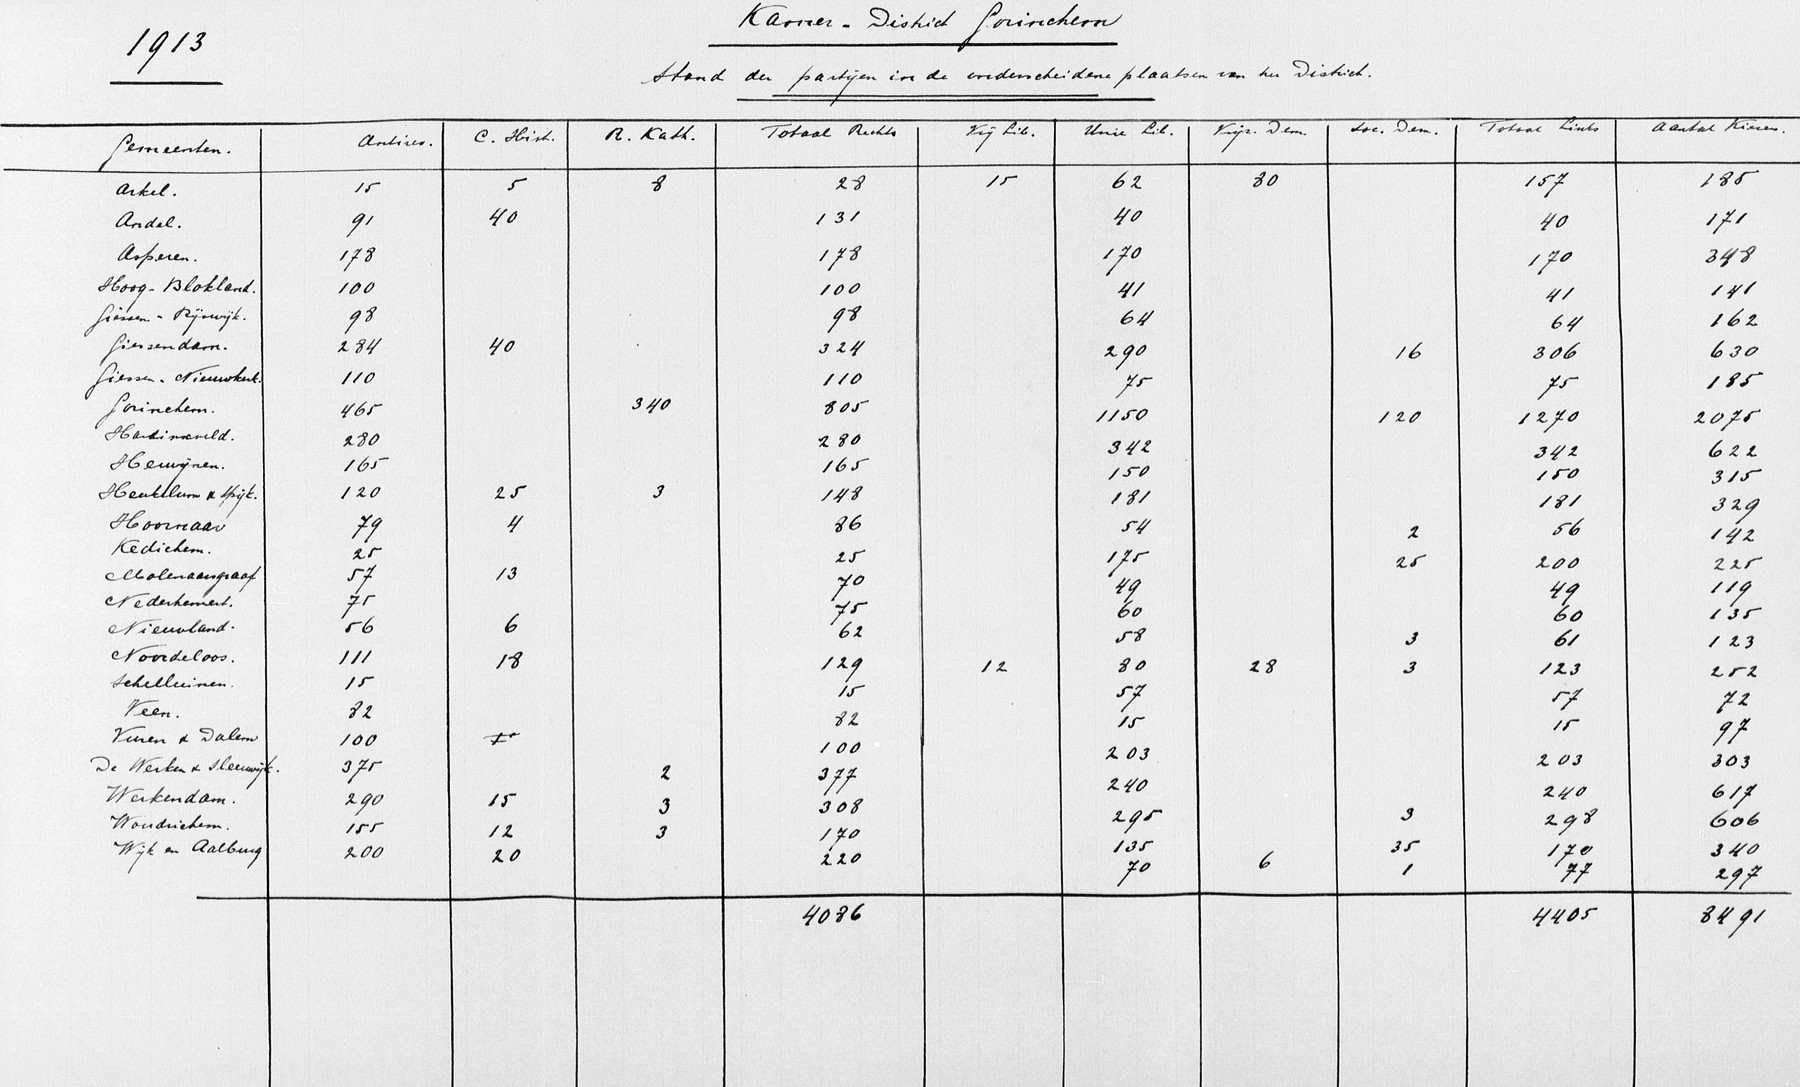 1913
Kamer - District Gorinchem
Stand der partijen in de onderscheidene plaatsen van het District.
Gemeenten. Antirev. C. Hist. R. Kath. Totaal Rechts Vrij Lib. Unie Lib. Vrijz. Dem. Soc. Dem. Totaal Links Aantal Kiezers.
Arkel. 15 5 8 28 15 62 80 157 185
Andel. 91 40 131 40 40 171
Asperen. 178 178 170 170 348
Hoog-Blokland. 100 100 41 41 141
Giessen - Rijswijk. 98 98 64 64 162
Giessendam. 284 40 324 290 16 306 630
Giessen-Nieuwkerk. 110 110 75 75 185
Gorinchem. 465 340 805 1150 120 1270 2075
Hardinxveld. 280 280 342 342 622
Herwijnen. 165 165 150 150 315
Heukelum & Spijk. 120 25 3 148 181 181 329
Hoornaar 79 4 86 54 2 56 142
Kedichem. 25 25 175 25 200 225
Molenaarsgraaf 57 13 70 49 49 119
Nederhemert. 75 75 60 60 135
Nieuwland. 56 6 62 58 3 61 123
Noordeloos. 111 18 129 12 80 28 3 123 252
Schelluinen. 15 15 57 57 72
Veen. 82 82 15 15 97
Vuren & Dalem 100 100 203 203 303
De Werken & Sleeuwijk. 375 2 377 240 240 617
Werkendam. 290 15 3 308 295 3 298 606
Woudrichem. 155 12 3 170 135 35 170 340
Wijk en Aalburg 200 20 220 70 6 1 77 297
4086 4405 8491